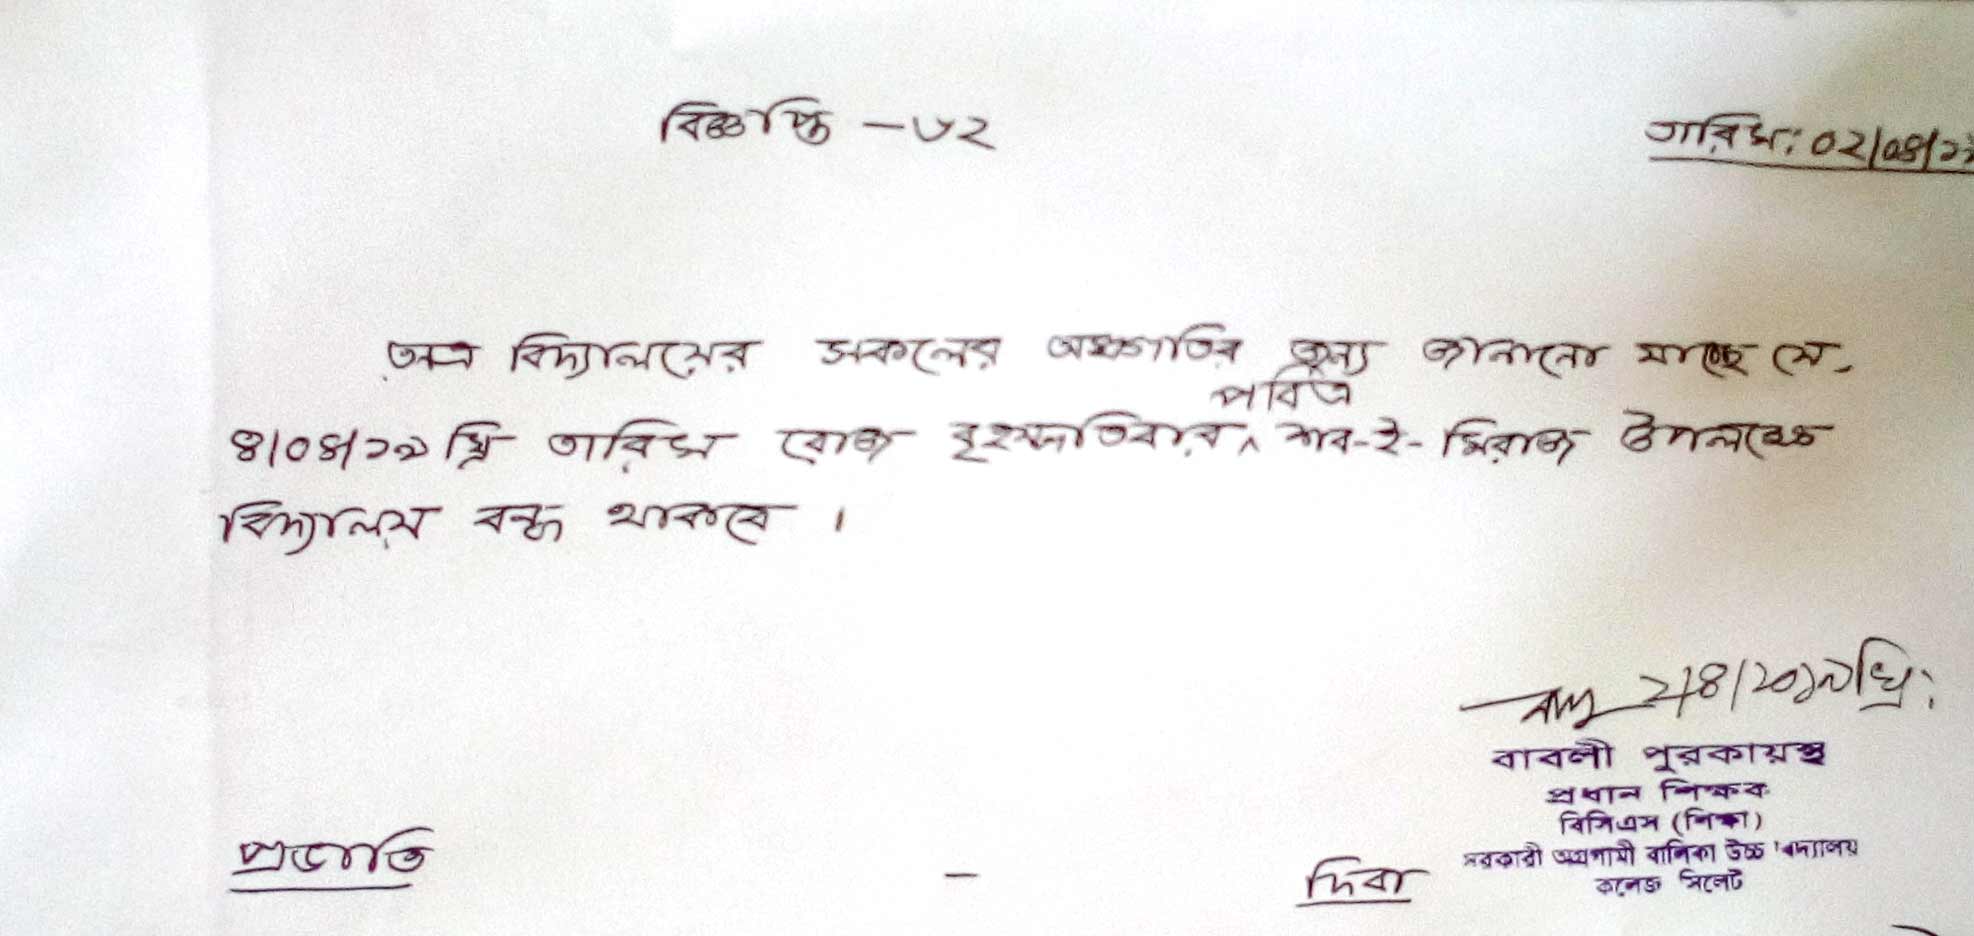 বিজ্ঞপ্তি -৬২
তারিখ: ০২/০৪/১৯
অত্র বিদ্যালয়ের সকলের অবগতির জন্য জানানো যাচ্ছে যে,
পবিত্র
৪/০৪/১৯ খ্রি তারিখ রোজ বৃহস্পতিবার ^ শব-ই-মিরাজ উপলক্ষে
বিদ্যালয় বন্ধ থাকবে ।
২/৪/২০১৯খ্রি:
বাবলী পুরকায়স্থ
প্রধান শিক্ষক
বিসিএস (শিক্ষা)
সরকারী অগ্রগামী বালিকা উচ্চ বিদ্যালয়
কলেজ সিলেট
প্রভাতি - দিবা